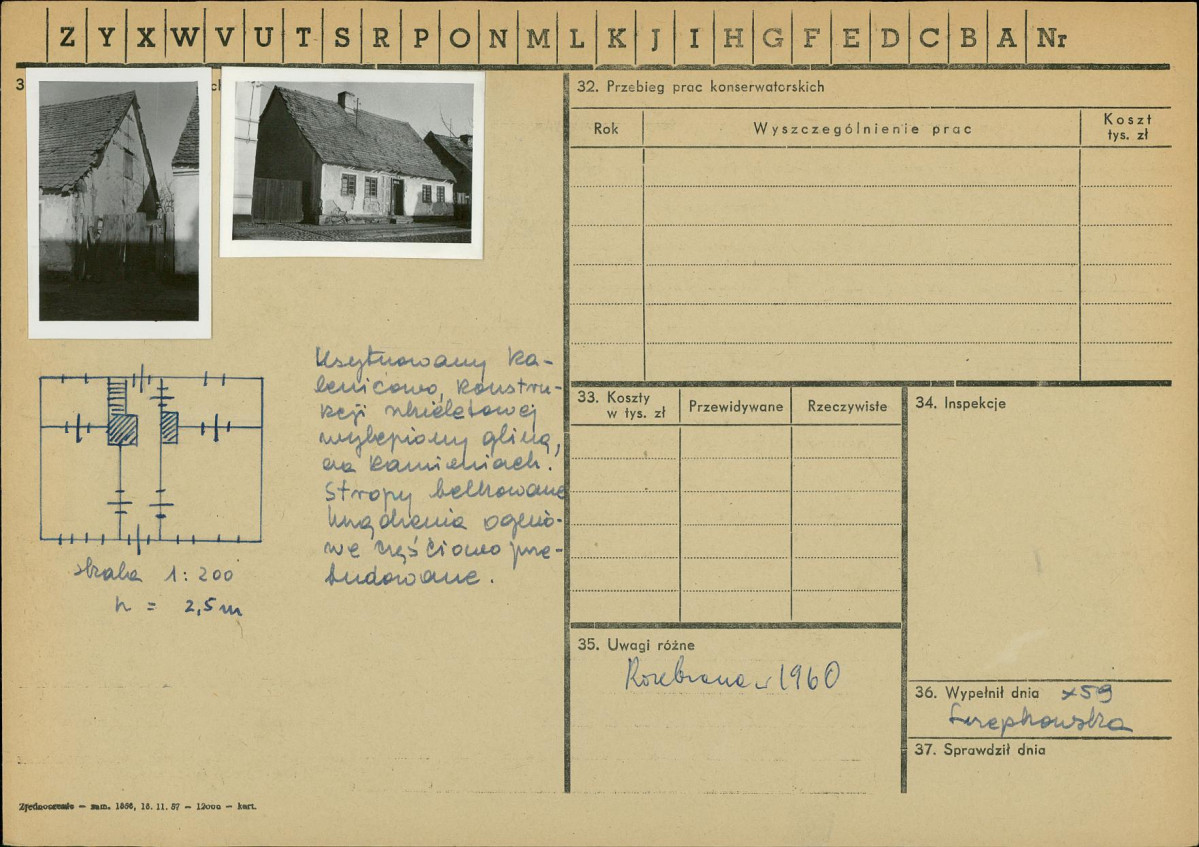 Z Y X W V U T S R P O N M L K J I H G F E D C B A Nr
3
32. Przebieg prac konserwatorskich
Rok
Wyszczególnienie prac
Koszt
tys. zł
Usytuowany ka-
lenicowo, konstru-
kcji szkieletowej
wylepiany gliną,
na kamieniach.
Stropy belkowane
Urządzenia ognio-
we częściowo prze-
budowane.
skala 1:200
h = 2,5 m
33. Koszty
w tys. zł
Przewidywane
Rzeczywiste
34. Inspekcje
35. Uwagi różne
Rozebrana w 1960
36. Wypełnił dnia x 59
37. Sprawdził dnia
Zjednoczenie — zam. 1566, 15. 11. 57 — 12000 — kart.